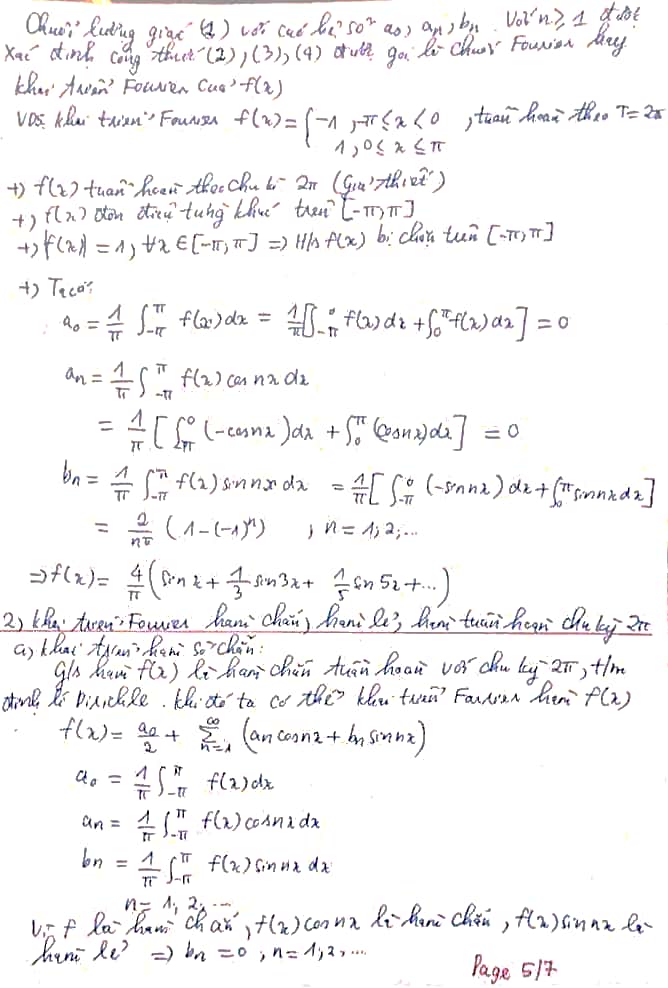 Chuỗi lượng giác (1) với các hệ số a₀, aₙ, bₙ. Với n ≥ 1 được
xác định công thức (2), (3), (4) được gọi là chuỗi Fourier hay
khai triển Fourier của f(x)
VD5: khai triển Fourier f(x) = { -1, -π ≤ x < 0 ; 1, 0 ≤ x ≤ π , tuần hoàn theo T = 2π
+) f(x) tuần hoàn theo chu kì 2π (Giả thiết)
+) f(x) đơn điệu từng khúc trên [-π, π]
+) |f(x)| = 1, ∀x ∈ [-π, π] => H/s f(x) bị chặn trên [-π, π]
+) Ta có:
a₀ = 1/π ∫_{-π}^{π} f(x)dx = 1/π [∫_{-π}^{0} f(x)dx + ∫_{0}^{π} f(x)dx] = 0
aₙ = 1/π ∫_{-π}^{π} f(x) cos nx dx
= 1/π [∫_{-π}^{0} (-cosnx)dx + ∫_{0}^{π} (cosnx)dx] = 0
bₙ = 1/π ∫_{-π}^{π} f(x) sinnx dx = 1/π [∫_{-π}^{0} (-sinnx)dx + ∫_{0}^{π} sinnxdx]
= 2/nπ (1-(-1)ⁿ) , n = 1; 2; ...
=> f(x) = 4/π (sinx + 1/3 sin3x + 1/5 sin5x + ...)
2) Khai triển Fourier hàm chẵn, hàm lẻ, hàm tuần hoàn chu kỳ 2π
a) Khai triển hàm số chẵn:
G/s hàm f(x) là hàm chẵn tuần hoàn với chu kỳ 2π, t/m
định lí Dirichle. Khi đó ta có thể khai triển Fourier hàm f(x)
f(x) = a₀/2 + ∑_{n=1}^{∞} (aₙcosnx + bₙsinnx)
a₀ = 1/π ∫_{-π}^{π} f(x)dx
aₙ = 1/π ∫_{-π}^{π} f(x)cosnxdx
bₙ = 1/π ∫_{-π}^{π} f(x)sinnxdx
n = 1, 2, ...
Vì f là hàm chẵn, f(x)cosnx là hàm chẵn, f(x)sinnx là
hàm lẻ => bₙ = 0, n = 1, 2, ...
Page 5/7